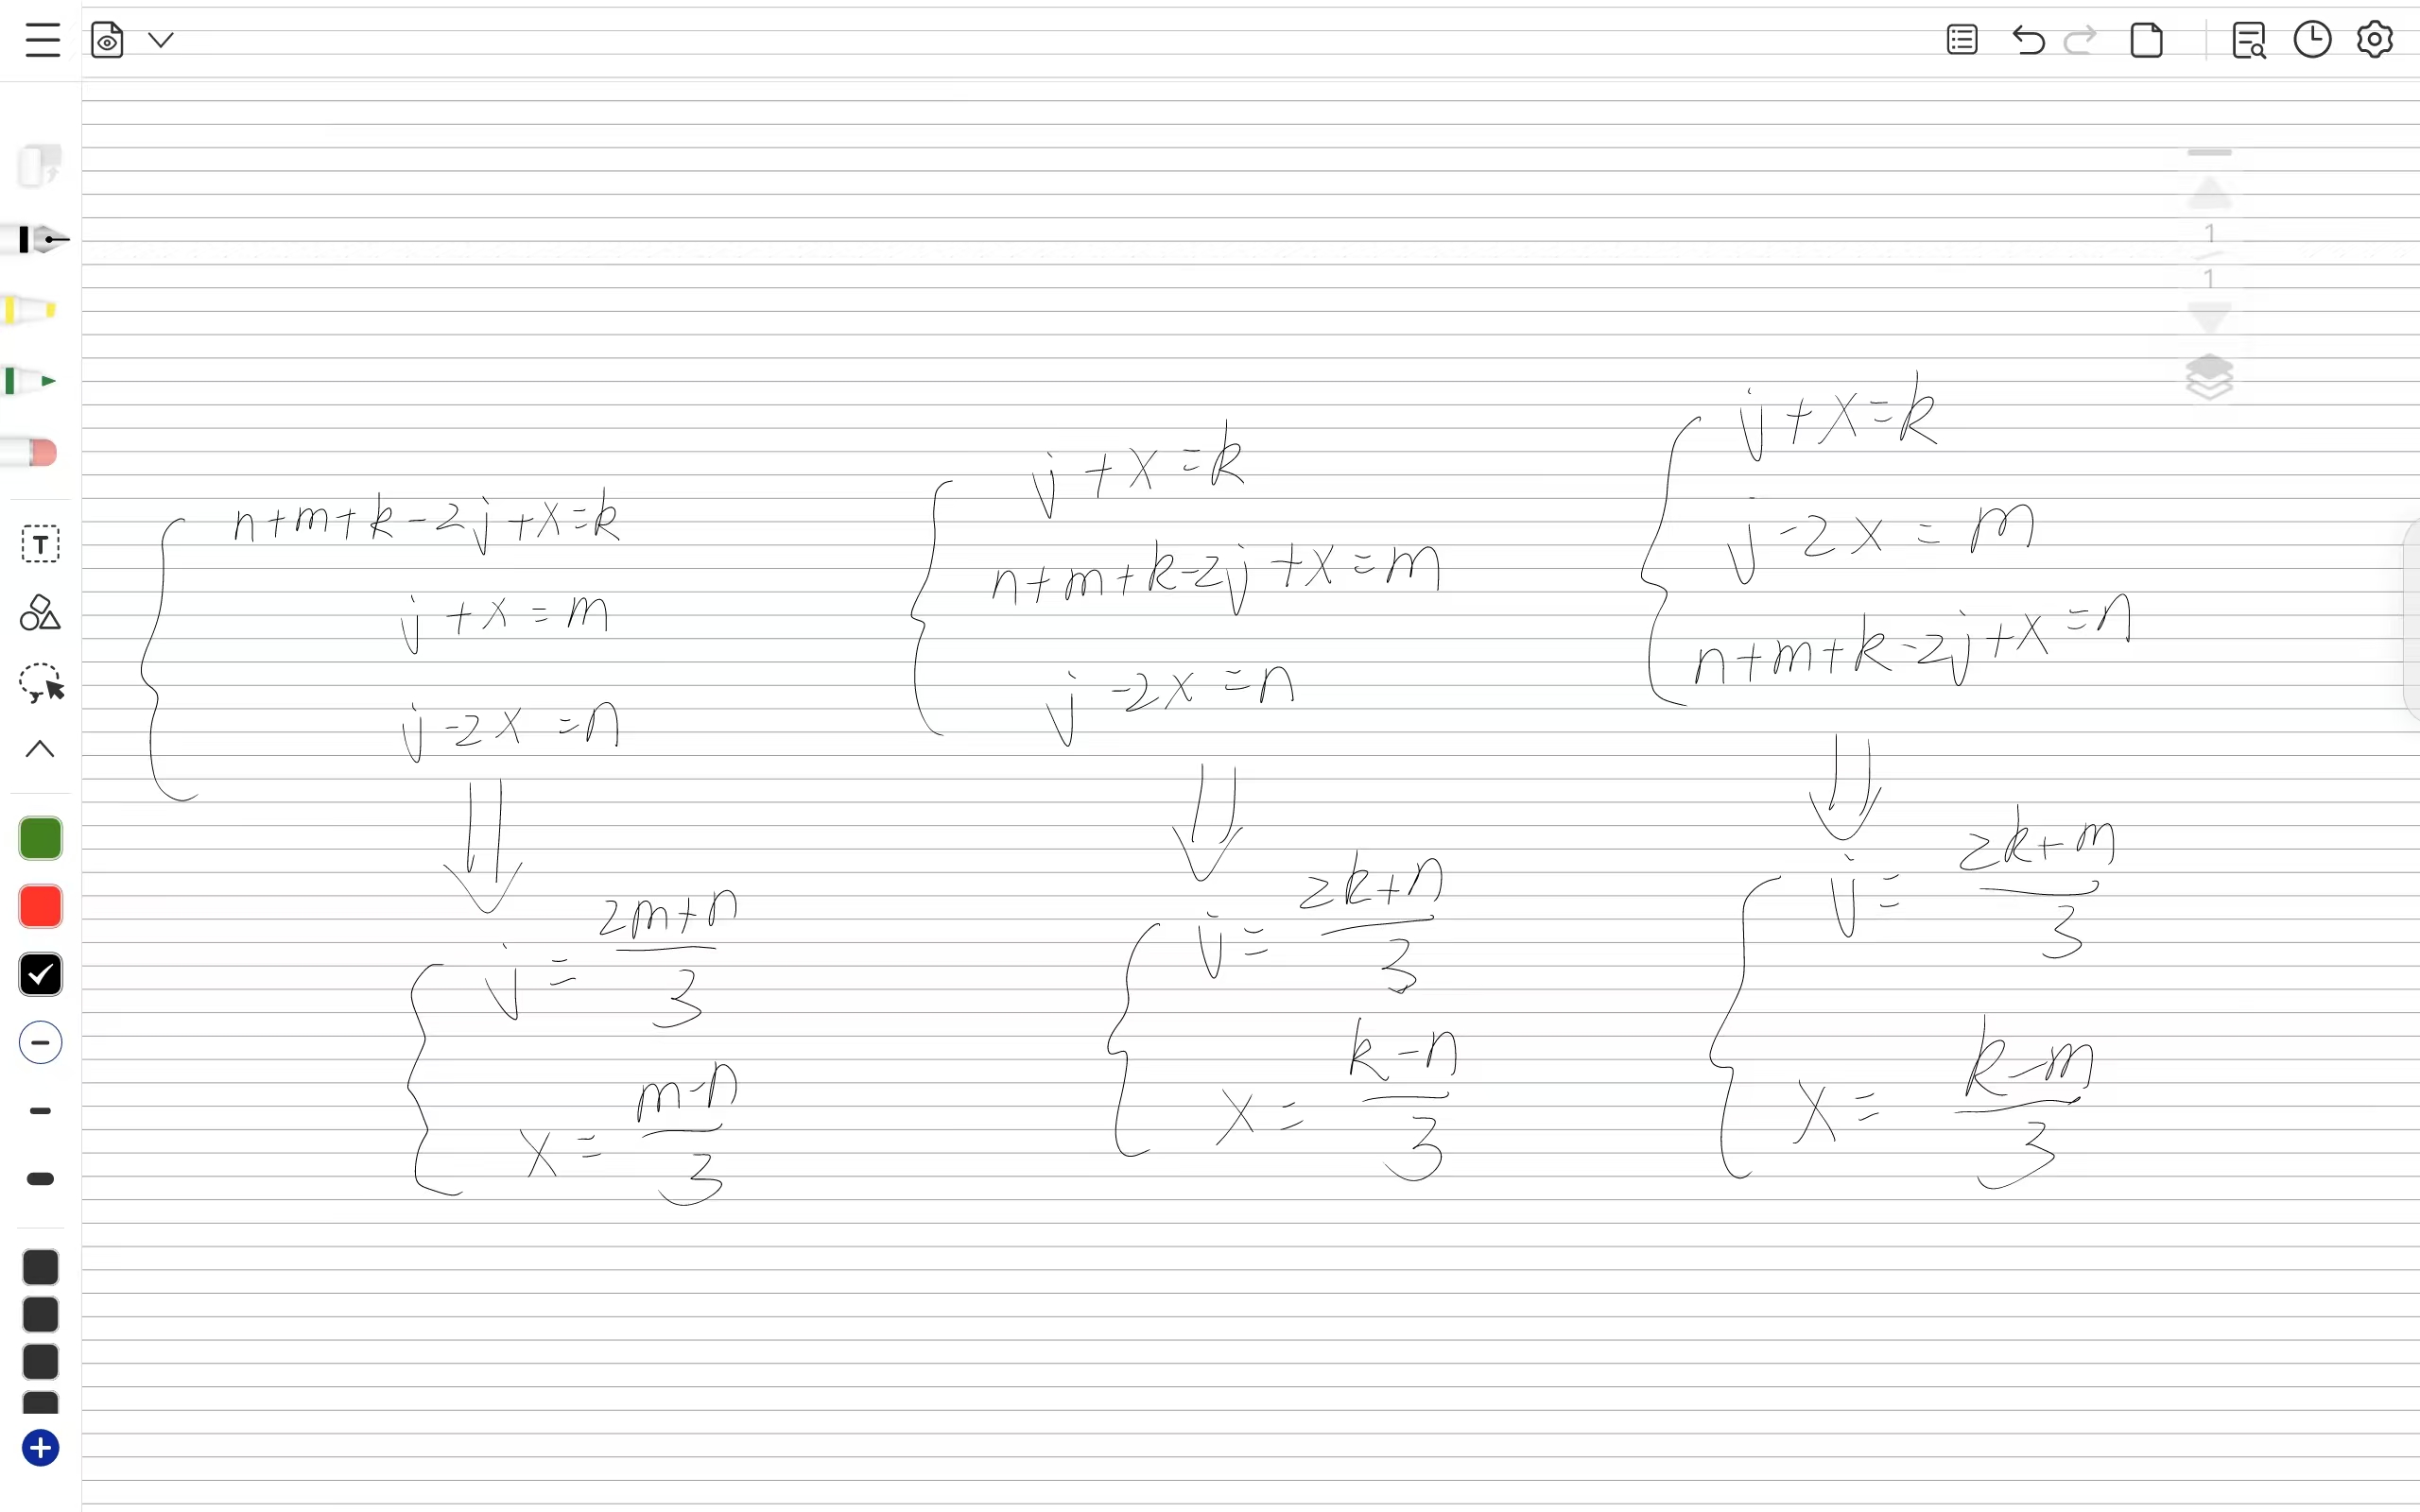 1
1
T
n+m+k-2j+x=k
j+x=m
j-2x=n
j=\frac{2m+n}{3}
x=\frac{m-n}{3}
j+x=k
n+m+k-2j+x=m
j-2x=n
j=\frac{2k+n}{3}
x=\frac{k-n}{3}
j+x=k
j-2x=m
n+m+k-2j+x=n
j=\frac{2k+m}{3}
x=\frac{k-m}{3}